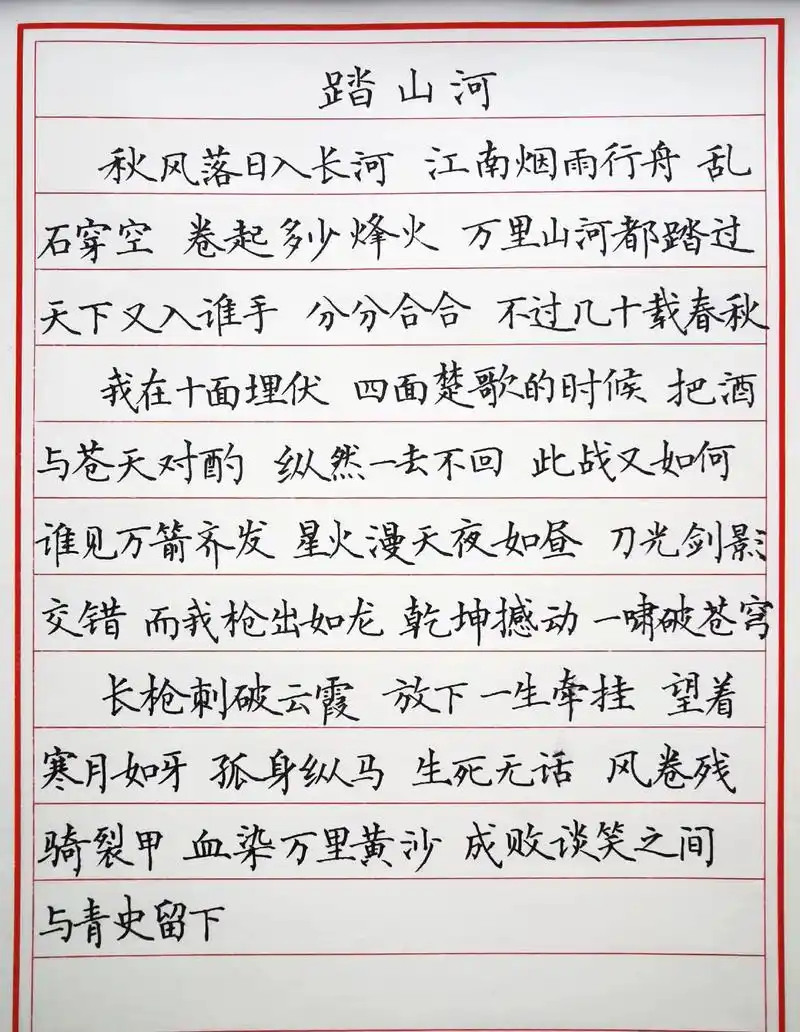 踏山河
秋风落日入长河 江南烟雨行舟 乱
石穿空 卷起多少烽火 万里山河都踏过
天下又入谁手 分分合合 不过几十载春秋
我在十面埋伏 四面楚歌的时候 把酒
与苍天对酌 纵然一去不回 此战又如何
谁见万箭齐发 星火漫天夜如昼 刀光剑影
交错 而我枪出如龙 乾坤撼动 一啸破苍穹
长枪刺破云霞 放下一生牵挂 望着
寒月如牙 孤身纵马 生死无话 风卷残
骑裂甲 血染万里黄沙 成败谈笑之间
与青史留下